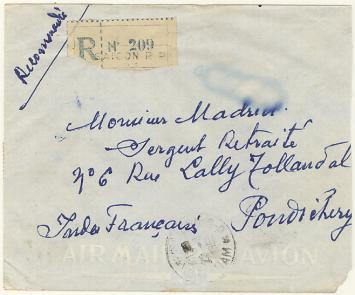 Recommandé
R Nº 209
SAIGON R P
Monsieur Madrui.
Sergent Retraité
Nº 6 Rue Lally Tollandal
Indes Françaises Pondichery
AIR MAIL AVION